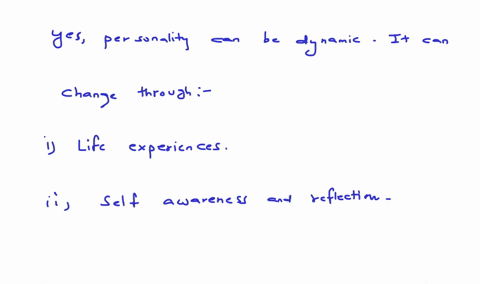 yes, personality can be dynamic. It can
change through:-
i) Life experiences.
ii, Self awareness and reflection-